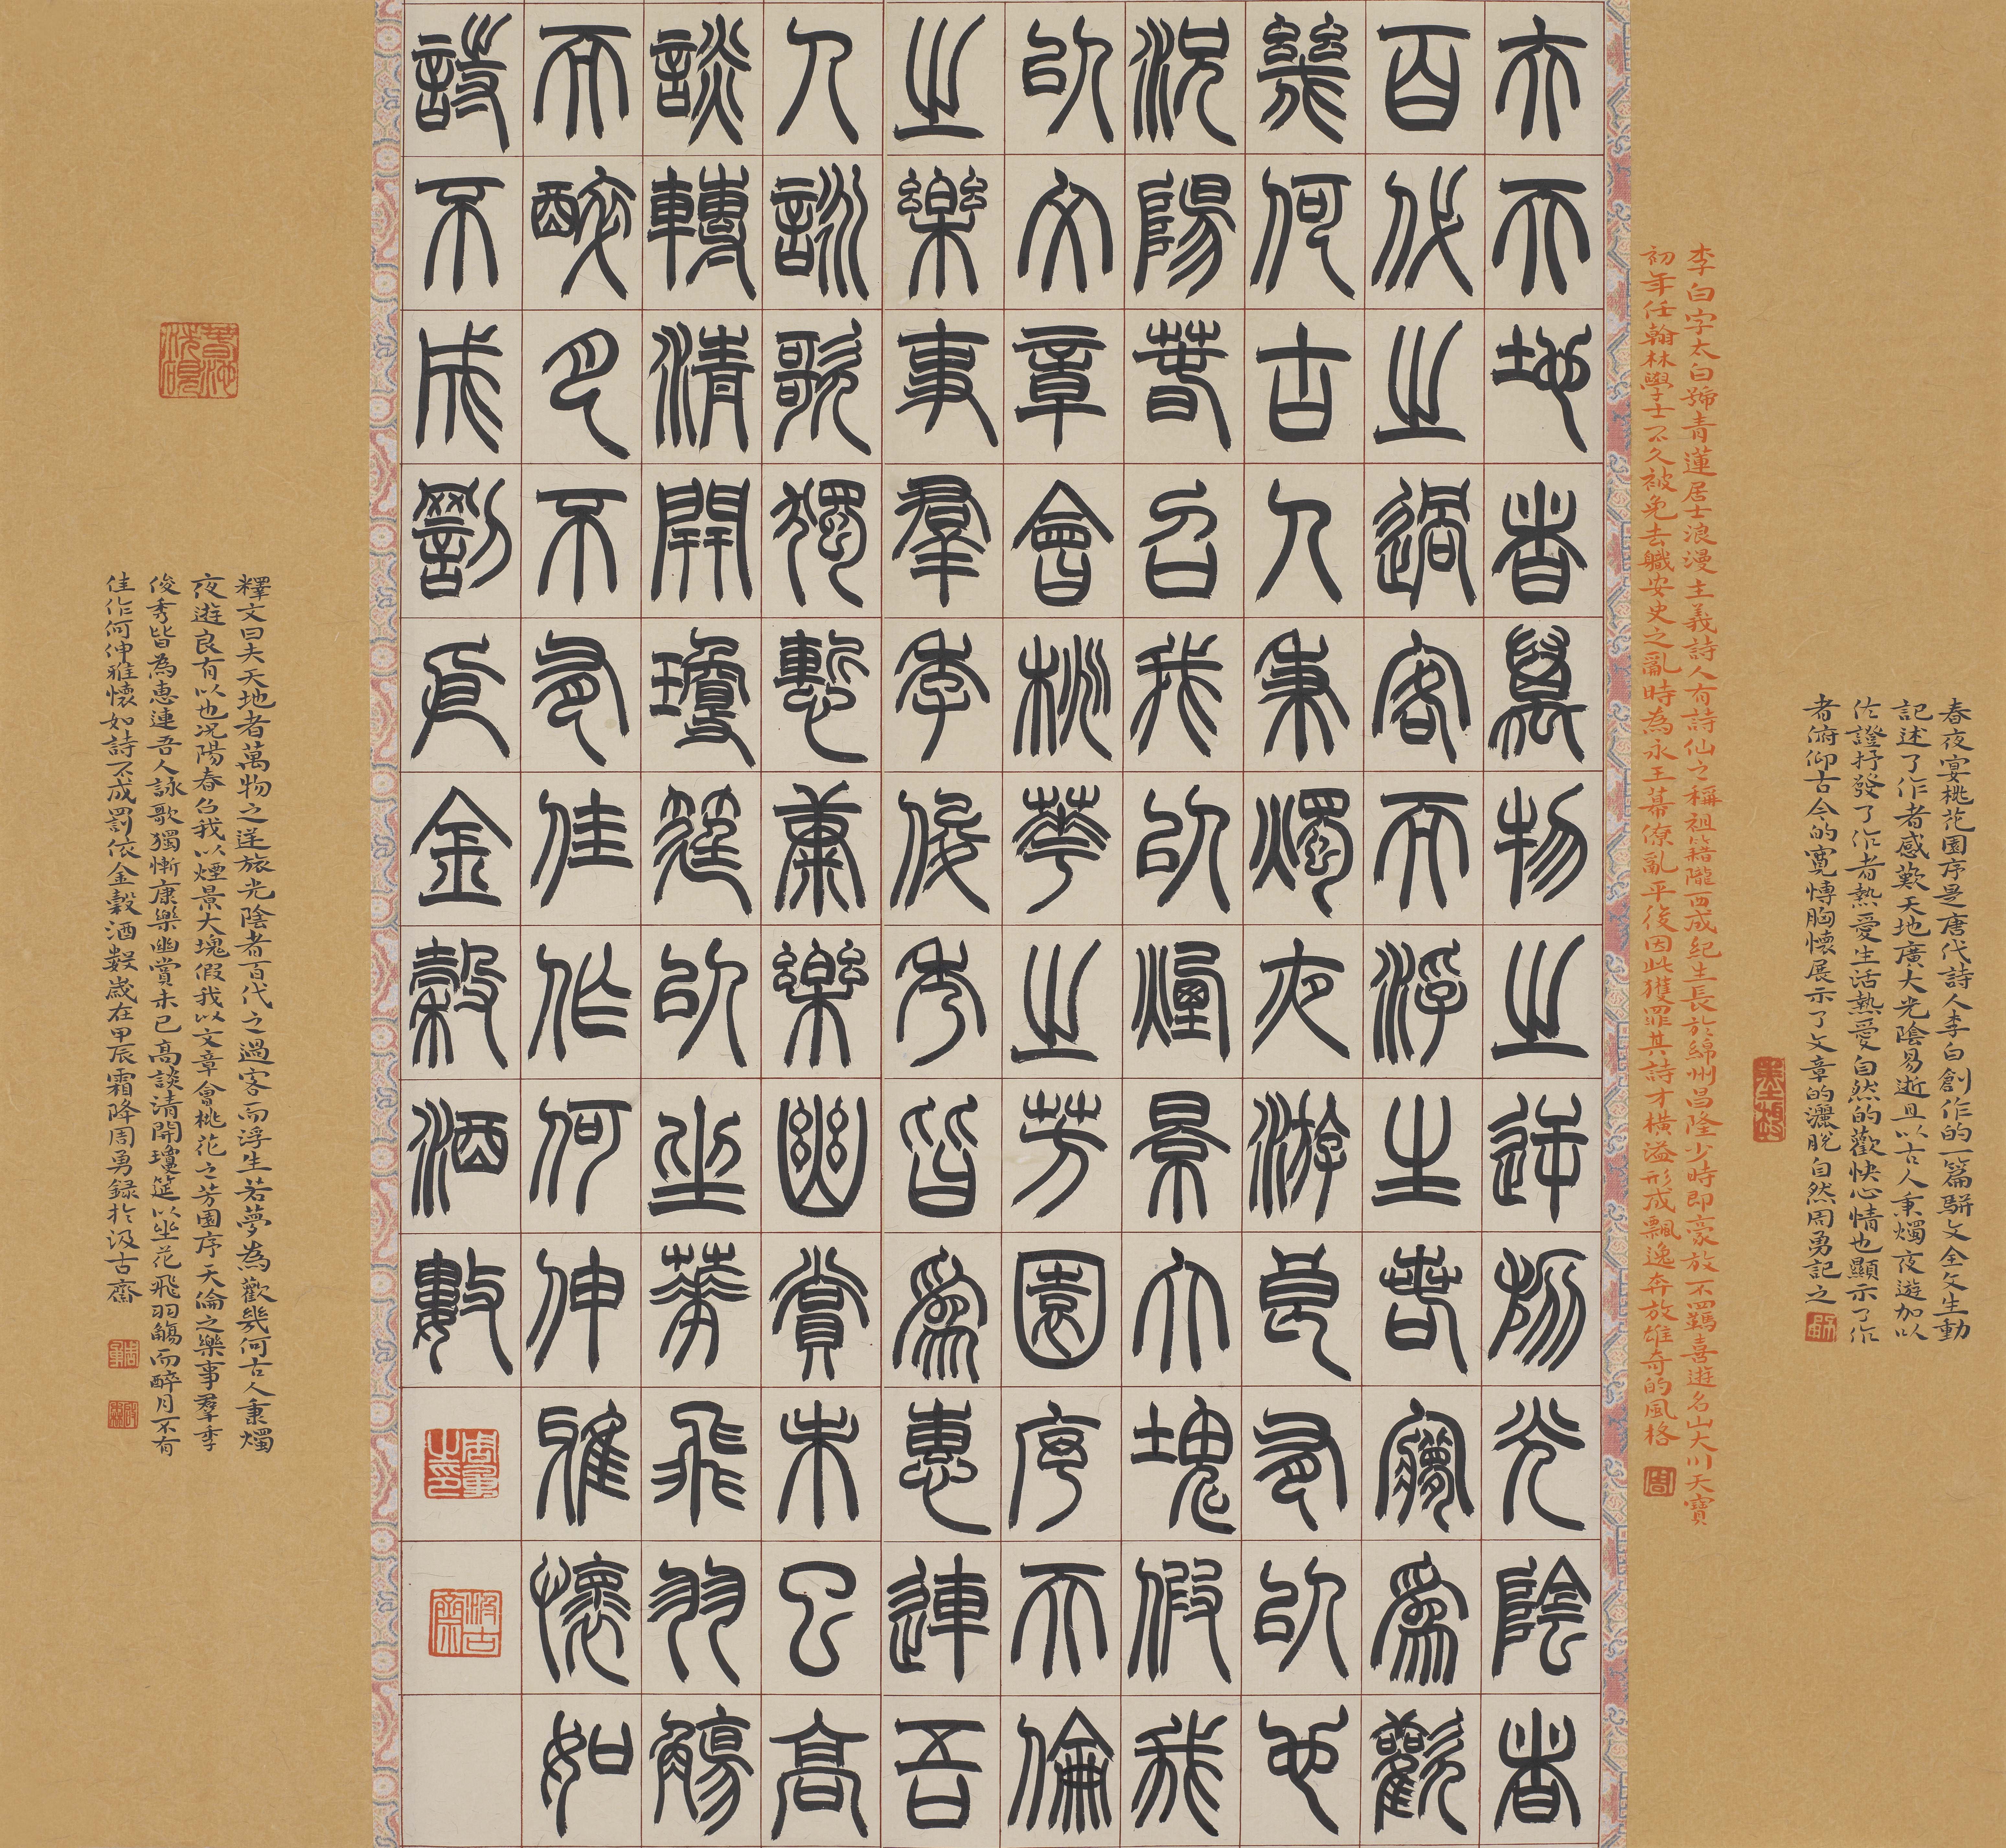 春夜宴桃花園序是唐代詩人李白創作的一篇駢文全文生動
記述了作者感歎天地廣大光陰易逝且以古人秉燭夜遊加以
佐證抒發了作者熱愛生活熱愛自然的歡快心情也顯示了作
者俯仰古今的寬博胸懷展示了文章的灑脫自然周勇記之
李白字太白號青蓮居士浪漫主義詩人有詩仙之稱祖籍隴西成紀生長於綿州昌隆少時即豪放不羈喜遊名山大川天寶
初年任翰林學士不久被免去職安史之亂時為永王幕僚亂平後因此獲罪其詩才橫溢形成飄逸奔放雄奇的風格
周
夫天地者萬物之逆旅光陰者
百代之過客而浮生若夢為歡
幾何古人秉燭夜游良有以也
況陽春召我以煙景大塊假我
以文章會桃華之芳園序天倫
之樂事羣季俊秀皆為惠連吾
人詠歌獨慙康樂幽賞未已高
談轉清開瓊筵以坐華飛羽觴
而醉月不有佳作何伸雅懷如
詩不成罰依金穀酒數
周勇之印
汲古齋
釋文曰夫天地者萬物之逆旅光陰者百代之過客而浮生若夢為歡幾何古人秉燭
夜遊良有以也況陽春召我以煙景大塊假我以文章會桃花之芳園序天倫之樂事羣季
俊秀皆為惠連吾人詠歌獨慚康樂幽賞未已高談清開瓊筵以坐花飛羽觴而醉月不有
佳作何伸雅懷如詩不成罰依金穀酒數歲在甲辰霜降周勇錄於汲古齋
周勇